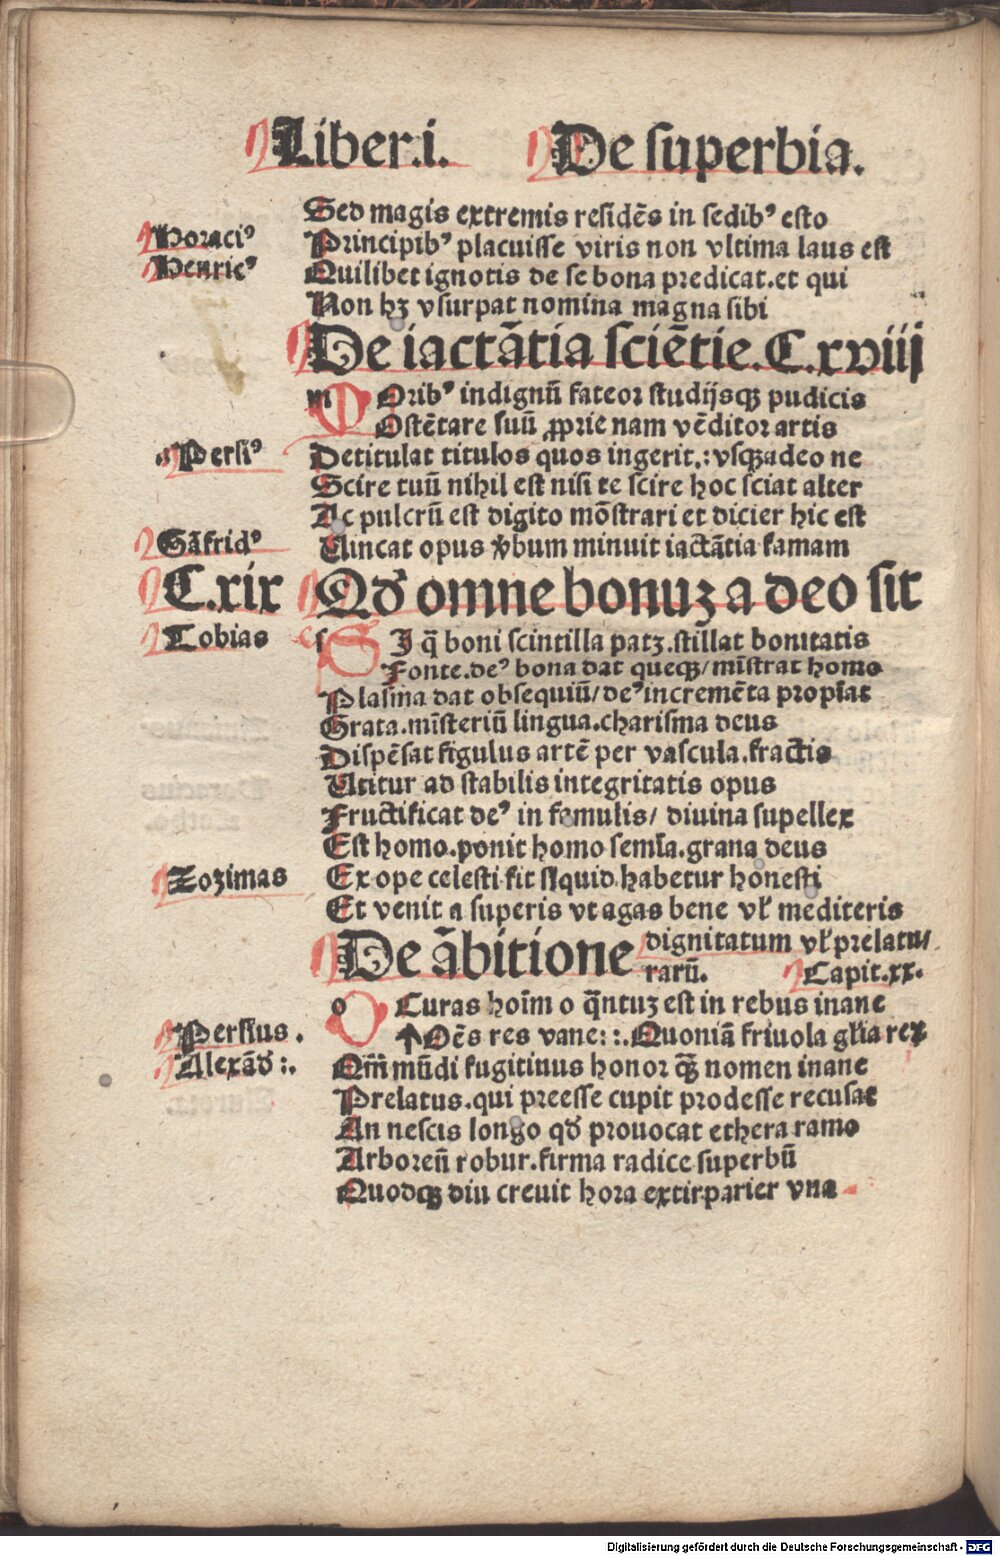 Liber.i. De superbia.
Sed magis extremis residēs in sedibꝰ esto
Horaciꝰ Principibꝰ placuisse viris non vltima laus est
Henricꝰ Quilibet ignotis de se bona predicat.et qui
Non hꝫ vsurpat nomina magna sibi
De iactātia sciētie.C.xviij
m Oribꝰ indignū fateor studijsqꝫ pudicis
Ostētare suū ꝓprie nam vēditor artis
Persiꝰ Detitulat titulos quos ingerit.:vsqꝫadeo ne
Scire tuū nihil est nisi te scire hoc sciat alter
Ac pulcrū est digito mōstrari et dicier hic est
Gāfridꝰ Uincat opus v̄bum minuit iactātia famam
C.xix Qd' omne bonuꝫ a deo sit
Tobias s I q̄ boni scintilla patꝫ.stillat bonitatis
Fonte.deꝰ bona dat queqꝫ/mīstrat homo
Plasma dat obsequiū/deꝰ incremēta propīat
Grata.mīsteriū lingua.charisma deus
Dispēsat figulus artē per vascula.fractis
Utitur ad stabilis integritatis opus
Fructificat deꝰ in famulis/ diuina supellex
Est homo.ponit homo semīa.grana deus
Zozimas Ex ope celesti fit siquid habetur honesti
Et venit a superis vt agas bene vł mediteris
De ābitione dignitatum vł prelatu/
rarū. Capit.xx.
o Curas hoīm o q̄ntuꝫ est in rebus inane
Persius. Oēs res vane::.Quoniā friuola głia rex
Alexād':. Qm̄ mūdi fugitiuus honor qꝫ nomen inane
Prelatus.qui preesse cupit prodesse recusat
An nescis longo qd' prouocat ethera ramo
Arboreū robur.firma radice superbū
Quodqꝫ diu creuit hora extirparier vna
Digitalisierung gefördert durch die Deutsche Forschungsgemeinschaft - DFG